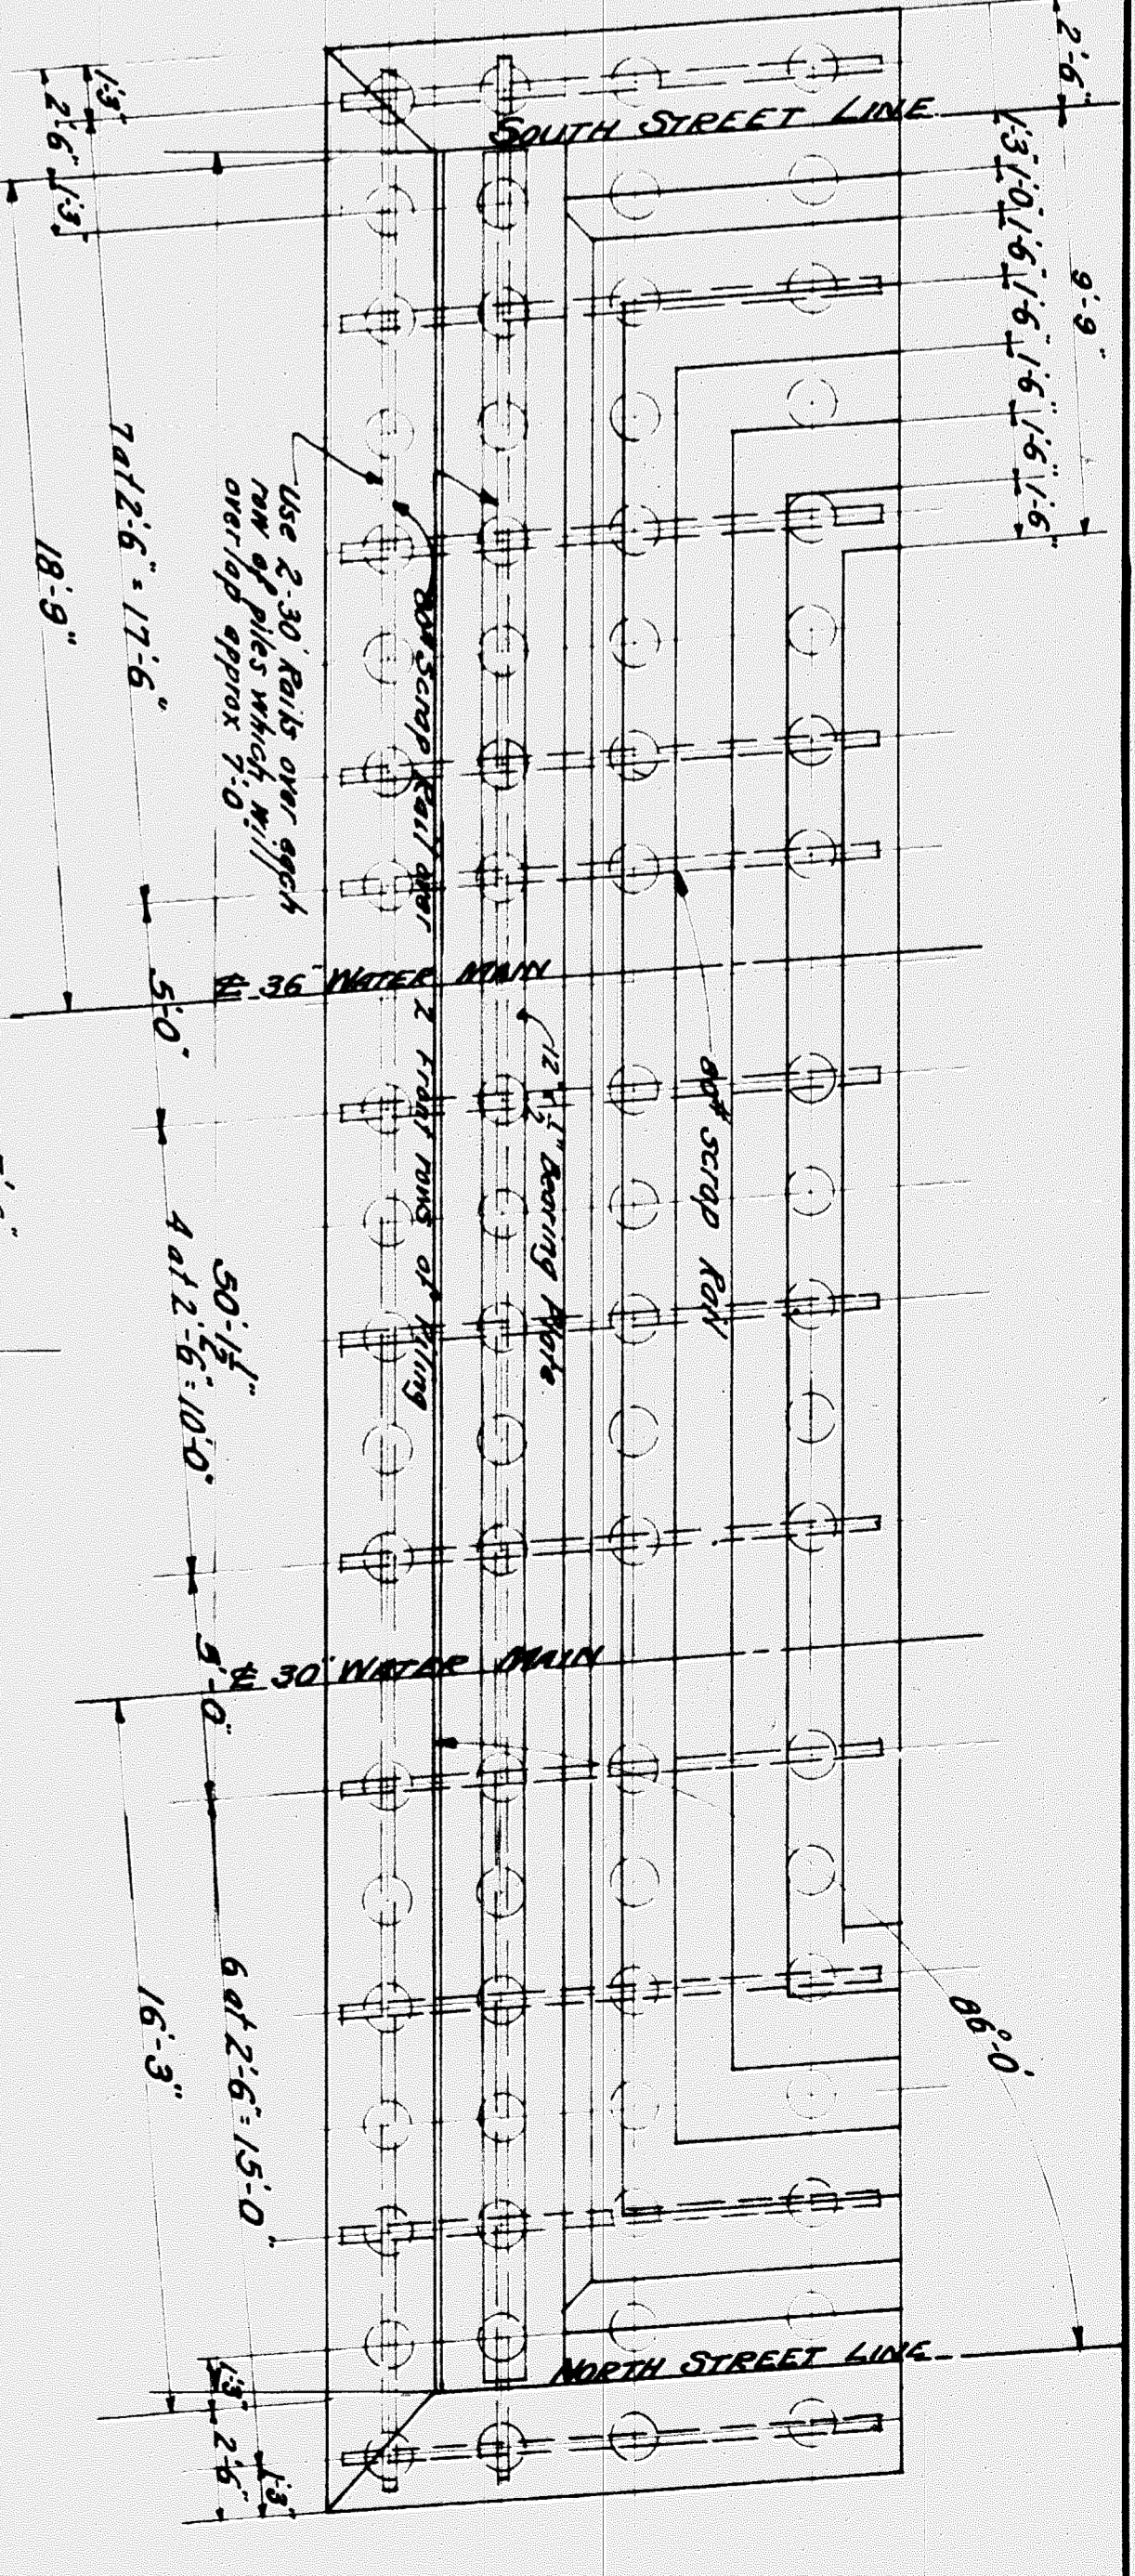 2'-6"
9'-9"
1'-3" 1'-0" 1'-6" 1'-6" 1'-6" 1'-6" 1'-6"
SOUTH STREET LINE
1'-3"
2'-6" 1'-3"
7 at 2'-6" = 17'-6"
18'-9"
Use 2-30' Rails over each
row of piles which will
overlap approx 7'-0"
80# Scrap Rail over 2 front rows of Piling
℄ 36" WATER MAIN
12" x ½" Bearing Plate
80# scrap Rail
5'-0"
50'-1½"
4 at 2'-6" = 10'-0"
℄ 30" WATER MAIN
5'-0"
6 at 2'-6" = 15'-0"
16'-3"
NORTH STREET LINE
1'-3"
2'-6"
1'-3"